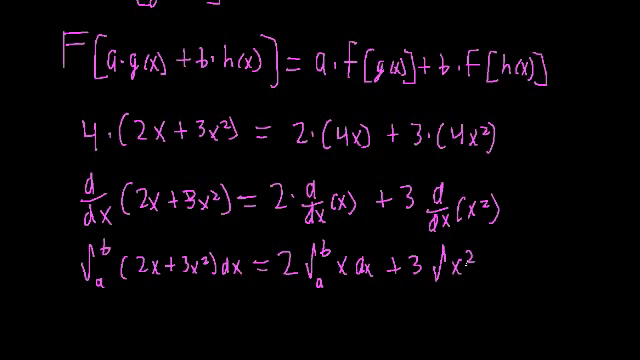 F[a·g(x) + b·h(x)] = a·F[g(x)] + b·F[h(x)]
4·(2x + 3x²) = 2·(4x) + 3·(4x²)
d/dx (2x + 3x²) = 2·d/dx (x) + 3 d/dx (x²)
∫ₐᵇ (2x + 3x²) dx = 2 ∫ₐᵇ x dx + 3 ∫ x²